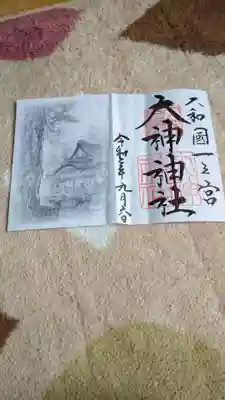 大和國一之宮
大神神社
令和七年九月六日